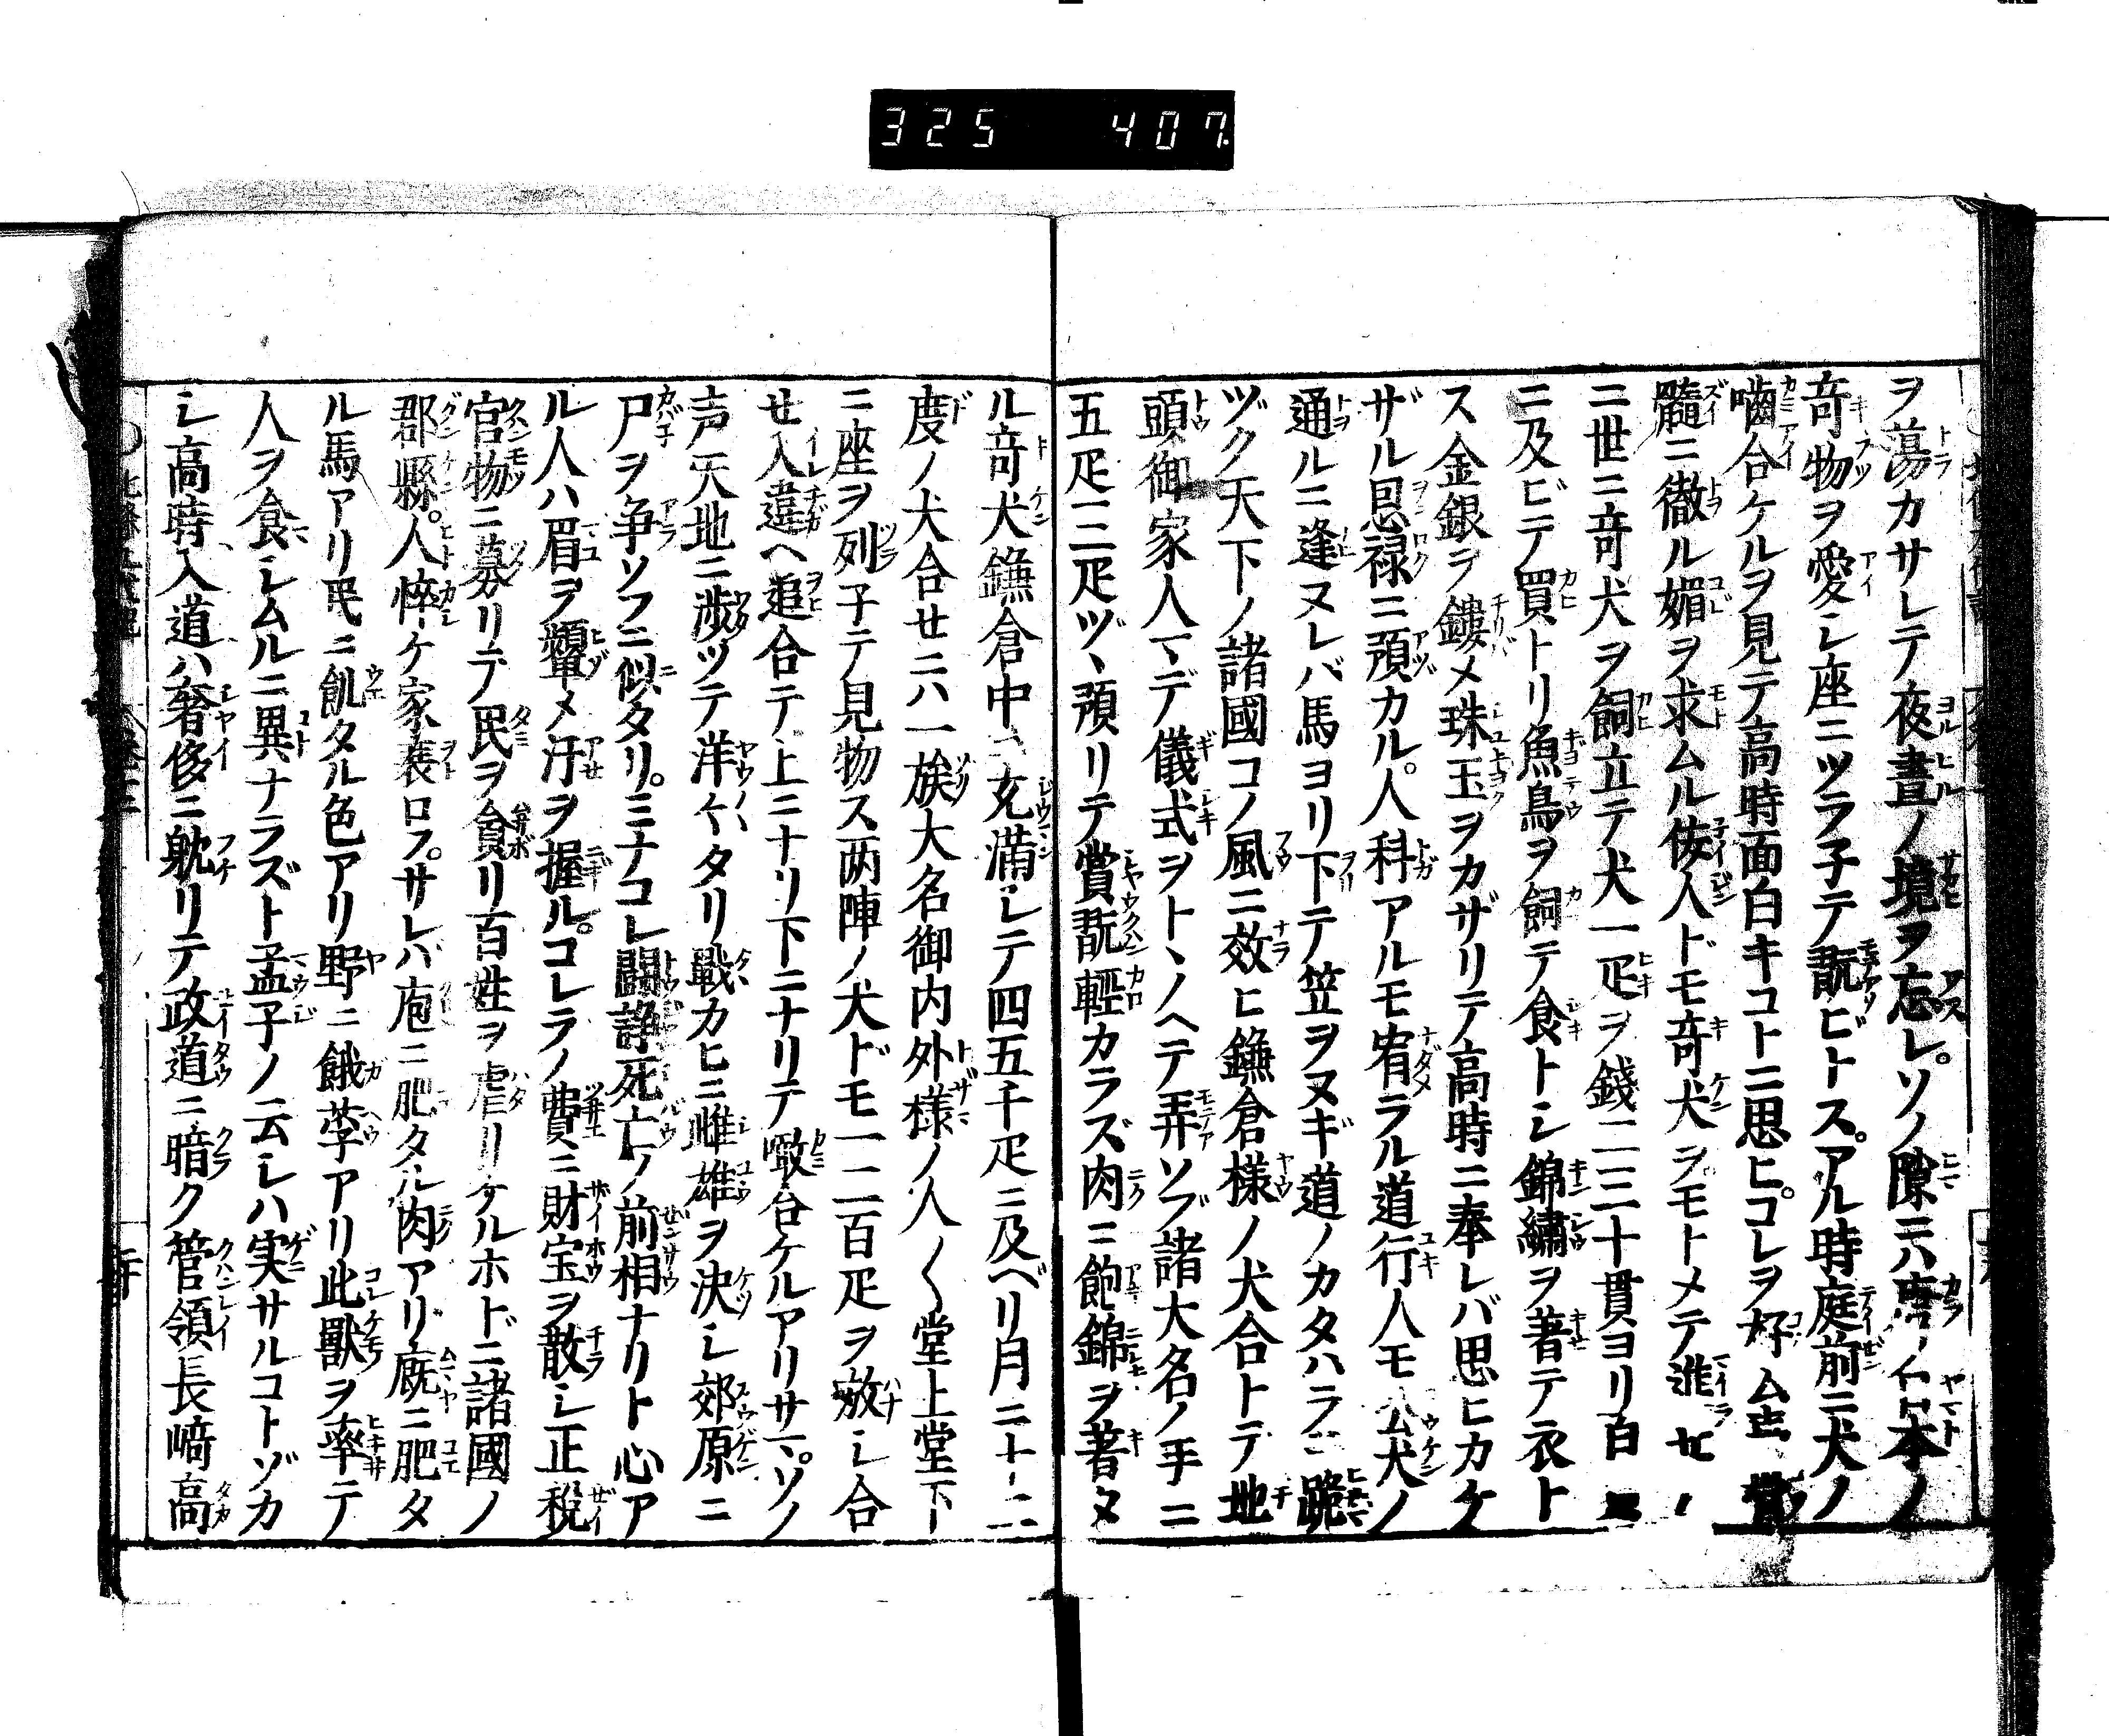 325 407
ヲ蕩カサレテ夜晝ノ境ヲ忘レ。ソノ隙ニハ唐日本ノ
奇物ヲ愛シ座ニツラ子テ翫ビトス。アル時庭前ニ犬ノ
噛合ケルヲ見テ高時面白キコトニ思ヒ。コレヲ好ム
髓ニ徹ル媚ヲ求ムル佞人ドモ奇犬ヲモトメテ進セ
ニ世ニ奇犬ヲ飼立テ犬一疋ヲ錢二三十貫ヨリ百
ニ及ビテ買トリ魚鳥ヲ飼テ食トシ錦繡ヲ著テ衣ト
ス金銀ヲ鏤メ珠玉ヲカザリテ高時ニ奉レバ思ヒカケ
ザル恩禄ニ預カル。人科アルモ宥ラル道行人モ犬ノ
通ルニ逢ヌレバ馬ヨリ下テ笠ヲヌギ道ノカタハラニ跪
ヅク天下ノ諸國コノ風ニ效ヒ鎌倉様ノ犬合トテ地
頭御家人マデ儀式ヲトヽノヘテ弄ソブ諸大名ノ手ニ
五疋三疋ヅヽ預リテ賞翫輕カラズ肉ニ飽錦ヲ著タ
ル奇犬鎌倉中ニ充滿シテ四五千疋ニ及ベリ月ニ十二
度ノ犬合セニハ一族大名御内外様ノ人〱堂上堂下
ニ座ヲ列子テ見物ス両陣ノ犬ドモ一二百疋ヲ放シ合
せ入違ヘ追合テ上ニナリ下ニナリテ噉合ケルアリサマ。ソノ
声天地ニ渉ツテ洋ケタリ戰カヒニ雌雄ヲ決シ郊原ニ
尸ヲ争ソフニ似タリ。ミナコレ闘諍死亡ノ前相ナリト心ア
ル人ハ眉ヲ顰メ汗ヲ握ル。コレラノ費ニ財宝ヲ散シ正税
官物ニ募リテ民ヲ貪リ百姓ヲ虐リケルホドニ諸國ノ
郡縣。人悴ケ家衰ロフ。サレバ庖ニ肥タル肉アリ廐ニ肥タ
ル馬アリ民ニ飢タル色アリ野ニ餓莩アリ此獸ヲ率テ
人ヲ食シムルニ異ナラズト孟子ノ云シハ実サルコトゾカ
シ高時入道ハ奢侈ニ躭リテ政道ニ暗ク管領長﨑高